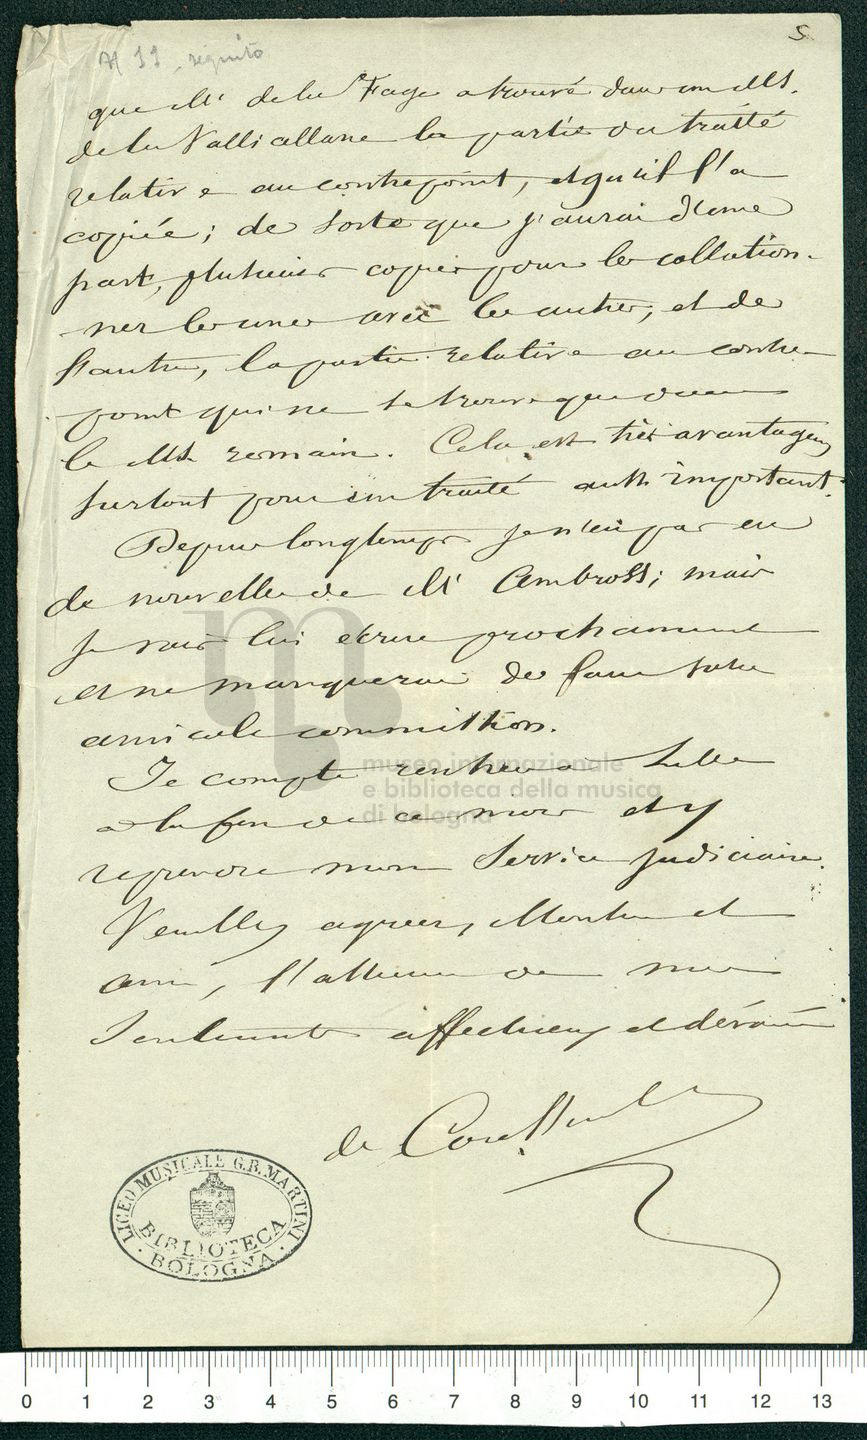 5
N 11, seguito
que Mr de la Fage a trouvé dans un Ms.
de la Vallicellane la partie du traité
relative au contrepoint, et qu'il l'a
copiée; de sorte que j'aurai d'une
part, plusieurs copies pour les collation-
ner les unes avec les autres, et de
l'autre, la partie relative au contre-
point qui ne se trouve que dans
le Ms. romain. Cela est très avantageux
surtout pour un traité aussi important.
Depuis longtemps je n'ai pas eu
de nouvelles de Mr Ambross; mais
je vais lui écrire prochainement
et ne manquerai de faire votre
amicale commission.
Je compte rentrer à Lille
à la fin de ce mois et y
reprendre mon service judiciaire.
Veuillez agréer, Monsieur et
ami, l'assurance de mes
sentiments affectueux et dévoués
de Coussemaker
museo internazionale
e biblioteca della musica
di bologna
LICEO MUSICALE G.B. MARTINI
BIBLIOTECA
BOLOGNA
0 1 2 3 4 5 6 7 8 9 10 11 12 13